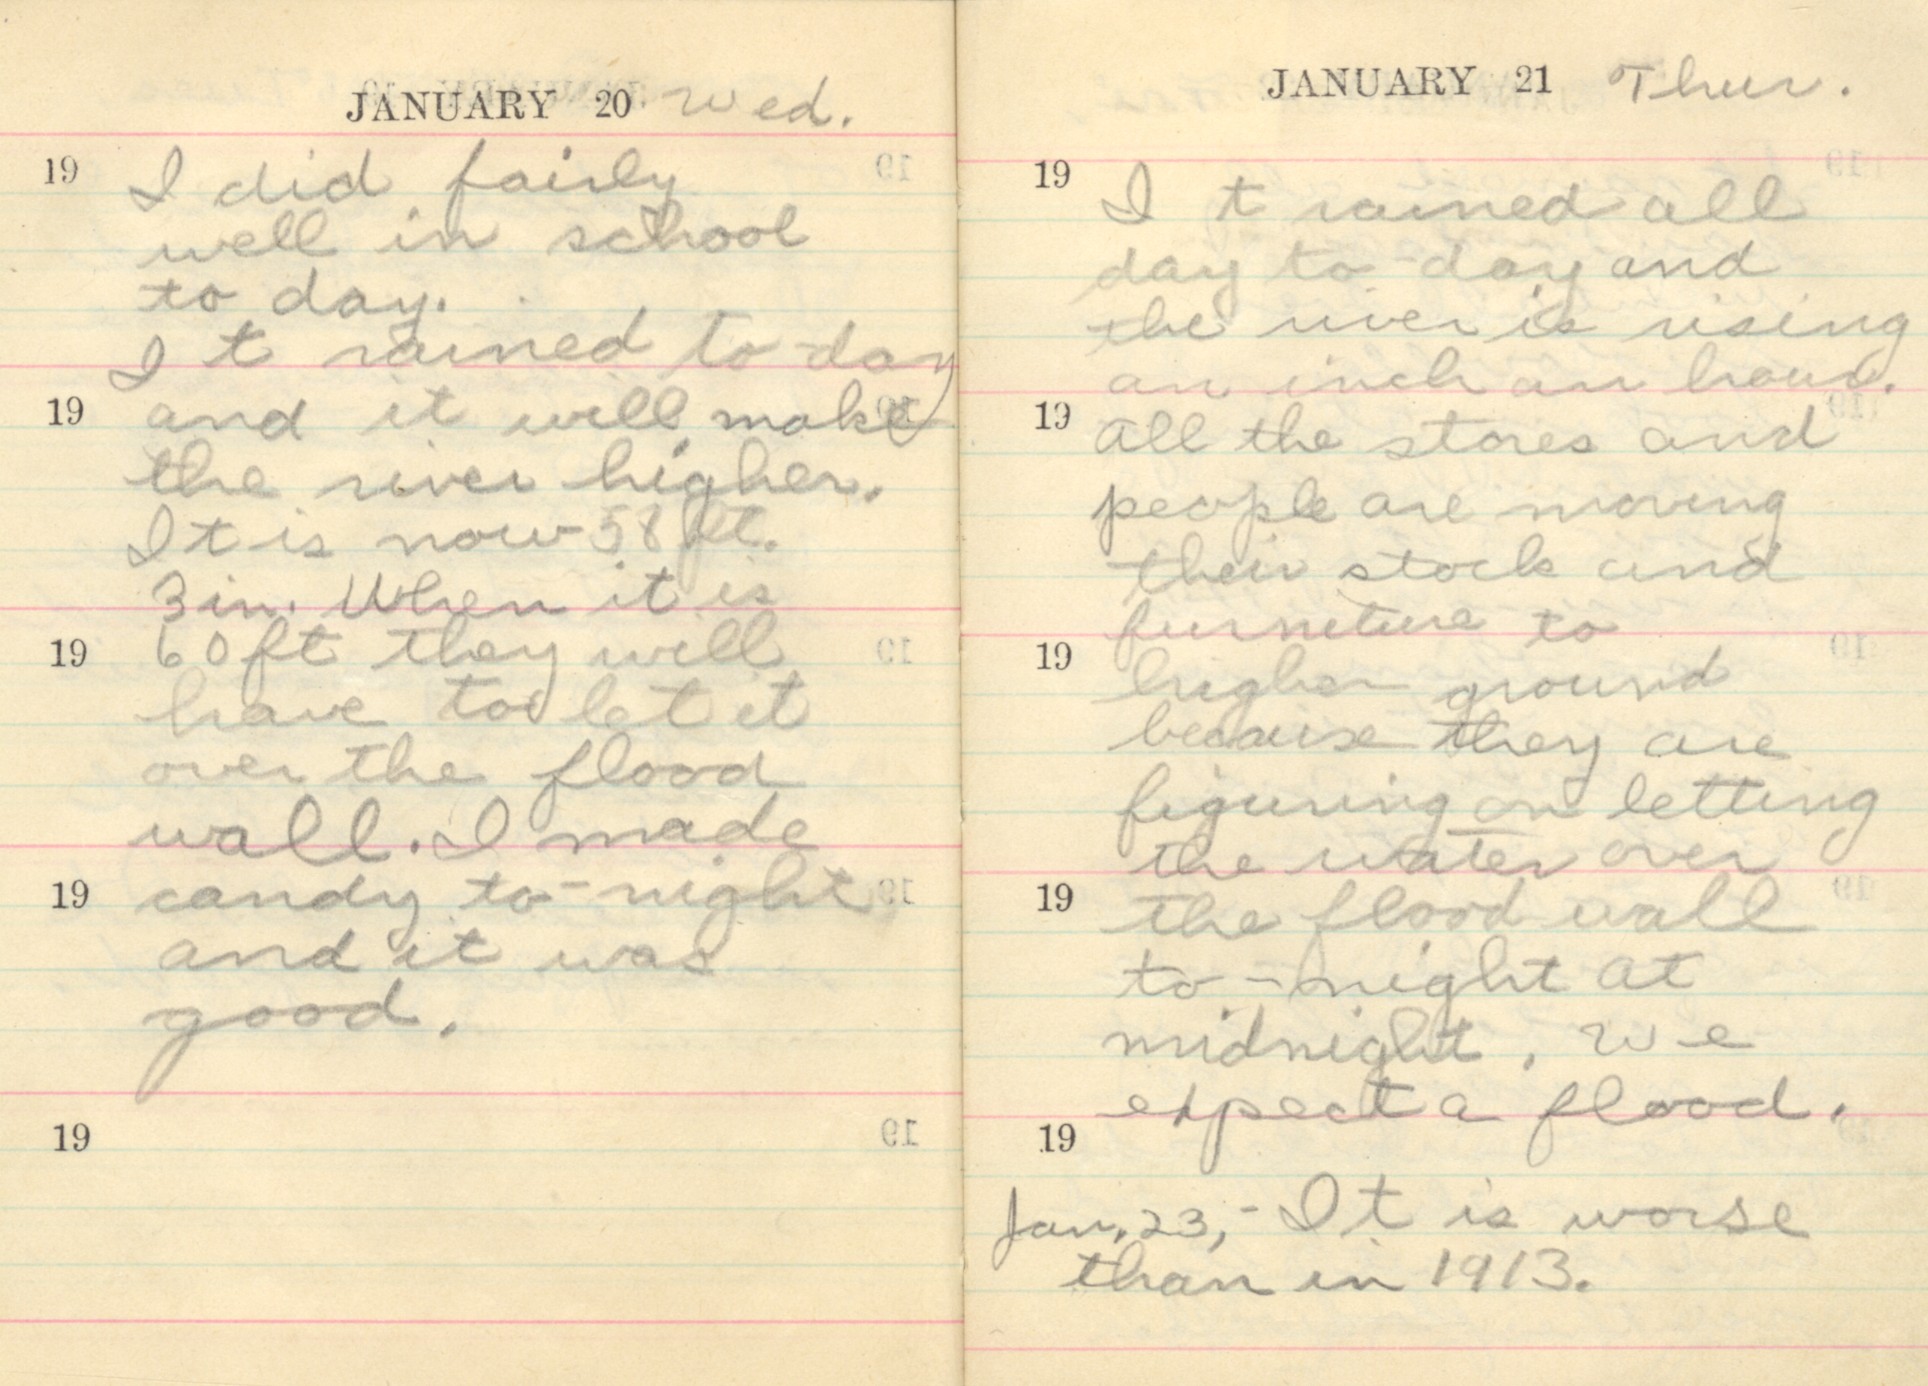 JANUARY 20 Wed.
19 I did fairly
well in school
to day.
It rained to-day
19 and it will make
the river higher.
It is now 58 ft.
3 in. When it is
19 60 ft they will
have too let it
over the flood
wall. I made
19 candy to-night
and it was
good.
19
JANUARY 21 Thur.
19 It rained all
day to-day and
the river is rising
an inch an hour.
19 all the stores and
people are moving
their stock and
furneture to
19 higher ground
because they are
figuring on letting
the water over
19 the flood wall
to-night at
midnight. We
expect a flood.
19
Jan. 23,- It is worse
than in 1913.